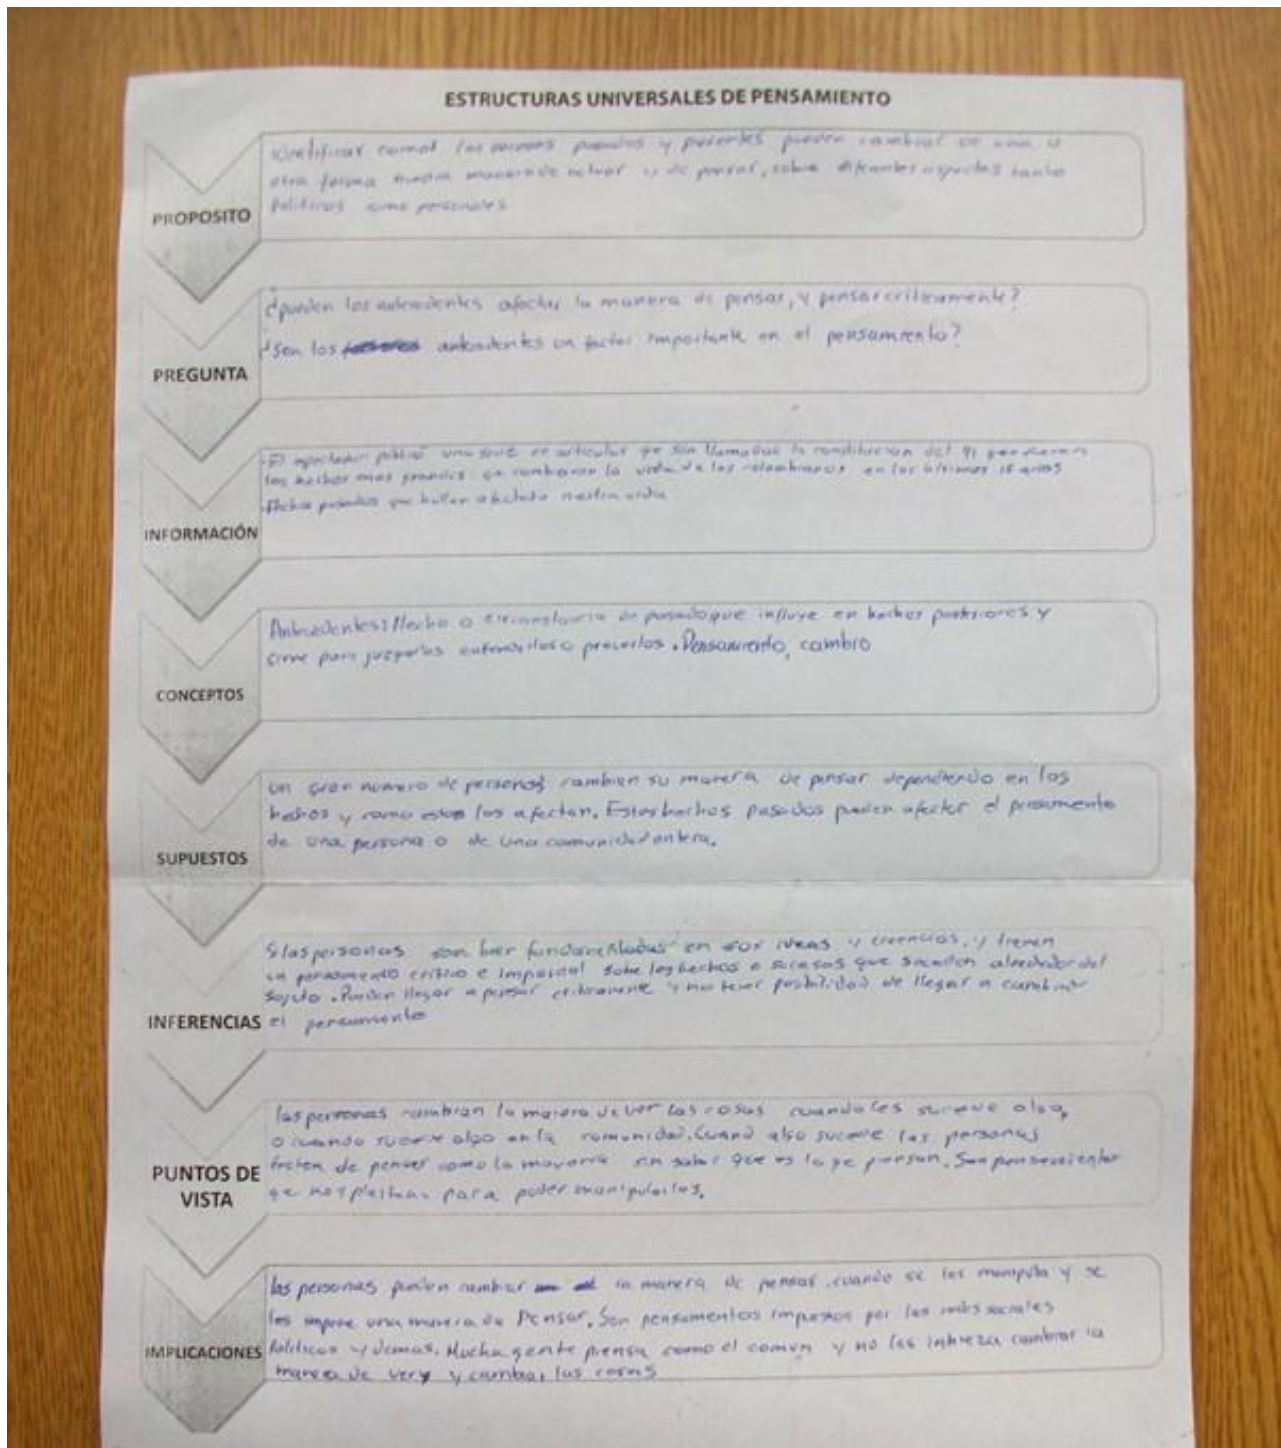 ESTRUCTURAS UNIVERSALES DE PENSAMIENTO
PROPOSITO
identificar como los pasados y presentes pueden cambiar de una u
otra forma nuestra manera de actuar y de pensar, sobre diferentes aspectos tanto
Politicos como personales
PREGUNTA
¿pueden los antecedentes afectar la manera de pensar, y pensar criticamente?
¿Son los antecedentes un factor importante en el pensamiento?
INFORMACIÓN
El espectador publicó una serie de articulos que son llamados la constitucion del 91
los hechos mas grandes que cambiaron la vida de los colombianos en los ultimos 15 años
Hechos pasados que hallan afectado nuestra vida
CONCEPTOS
Antecedentes: Hecho o circunstancia de pasado que influye en hechos posteriores y
sirve para juzgarlos entenderlos o preverlos. Pensamiento, cambio
SUPUESTOS
un gran numero de personas cambian su manera de pensar dependiendo en los
hechos y como estos los afectan. Estos hechos pasados pueden afectar el pensamiento
de una persona o de una comunidad entera.
INFERENCIAS
Si las personas son bien fundamentadas en sus ideas y creencias, y tienen
un pensamiento critico e imparcial sobre los hechos o sucesos que suceden alrededor del
sujeto. Pueden llegar a pensar criticamente y no tener posibilidad de llegar a cambiar
el pensamiento
PUNTOS DE
VISTA
las personas cambian la manera de ver las cosas cuando les sucede algo,
o cuando sucede algo en la comunidad. Cuand algo sucede las personas
traten de pensar como la mayoria sin saber que es lo que piensan. Son pensamientos
que nos para poder manipularlos.
IMPLICACIONES
las personas pueden cambiar la manera de pensar cuando se les manipula y se
les impone una manera de Pensar. Son pensamientos impuestos por las redes sociales
Politicos y demas. Mucha gente piensa como el comun y no les interesa cambiar la
manera de very y cambiar las cosas